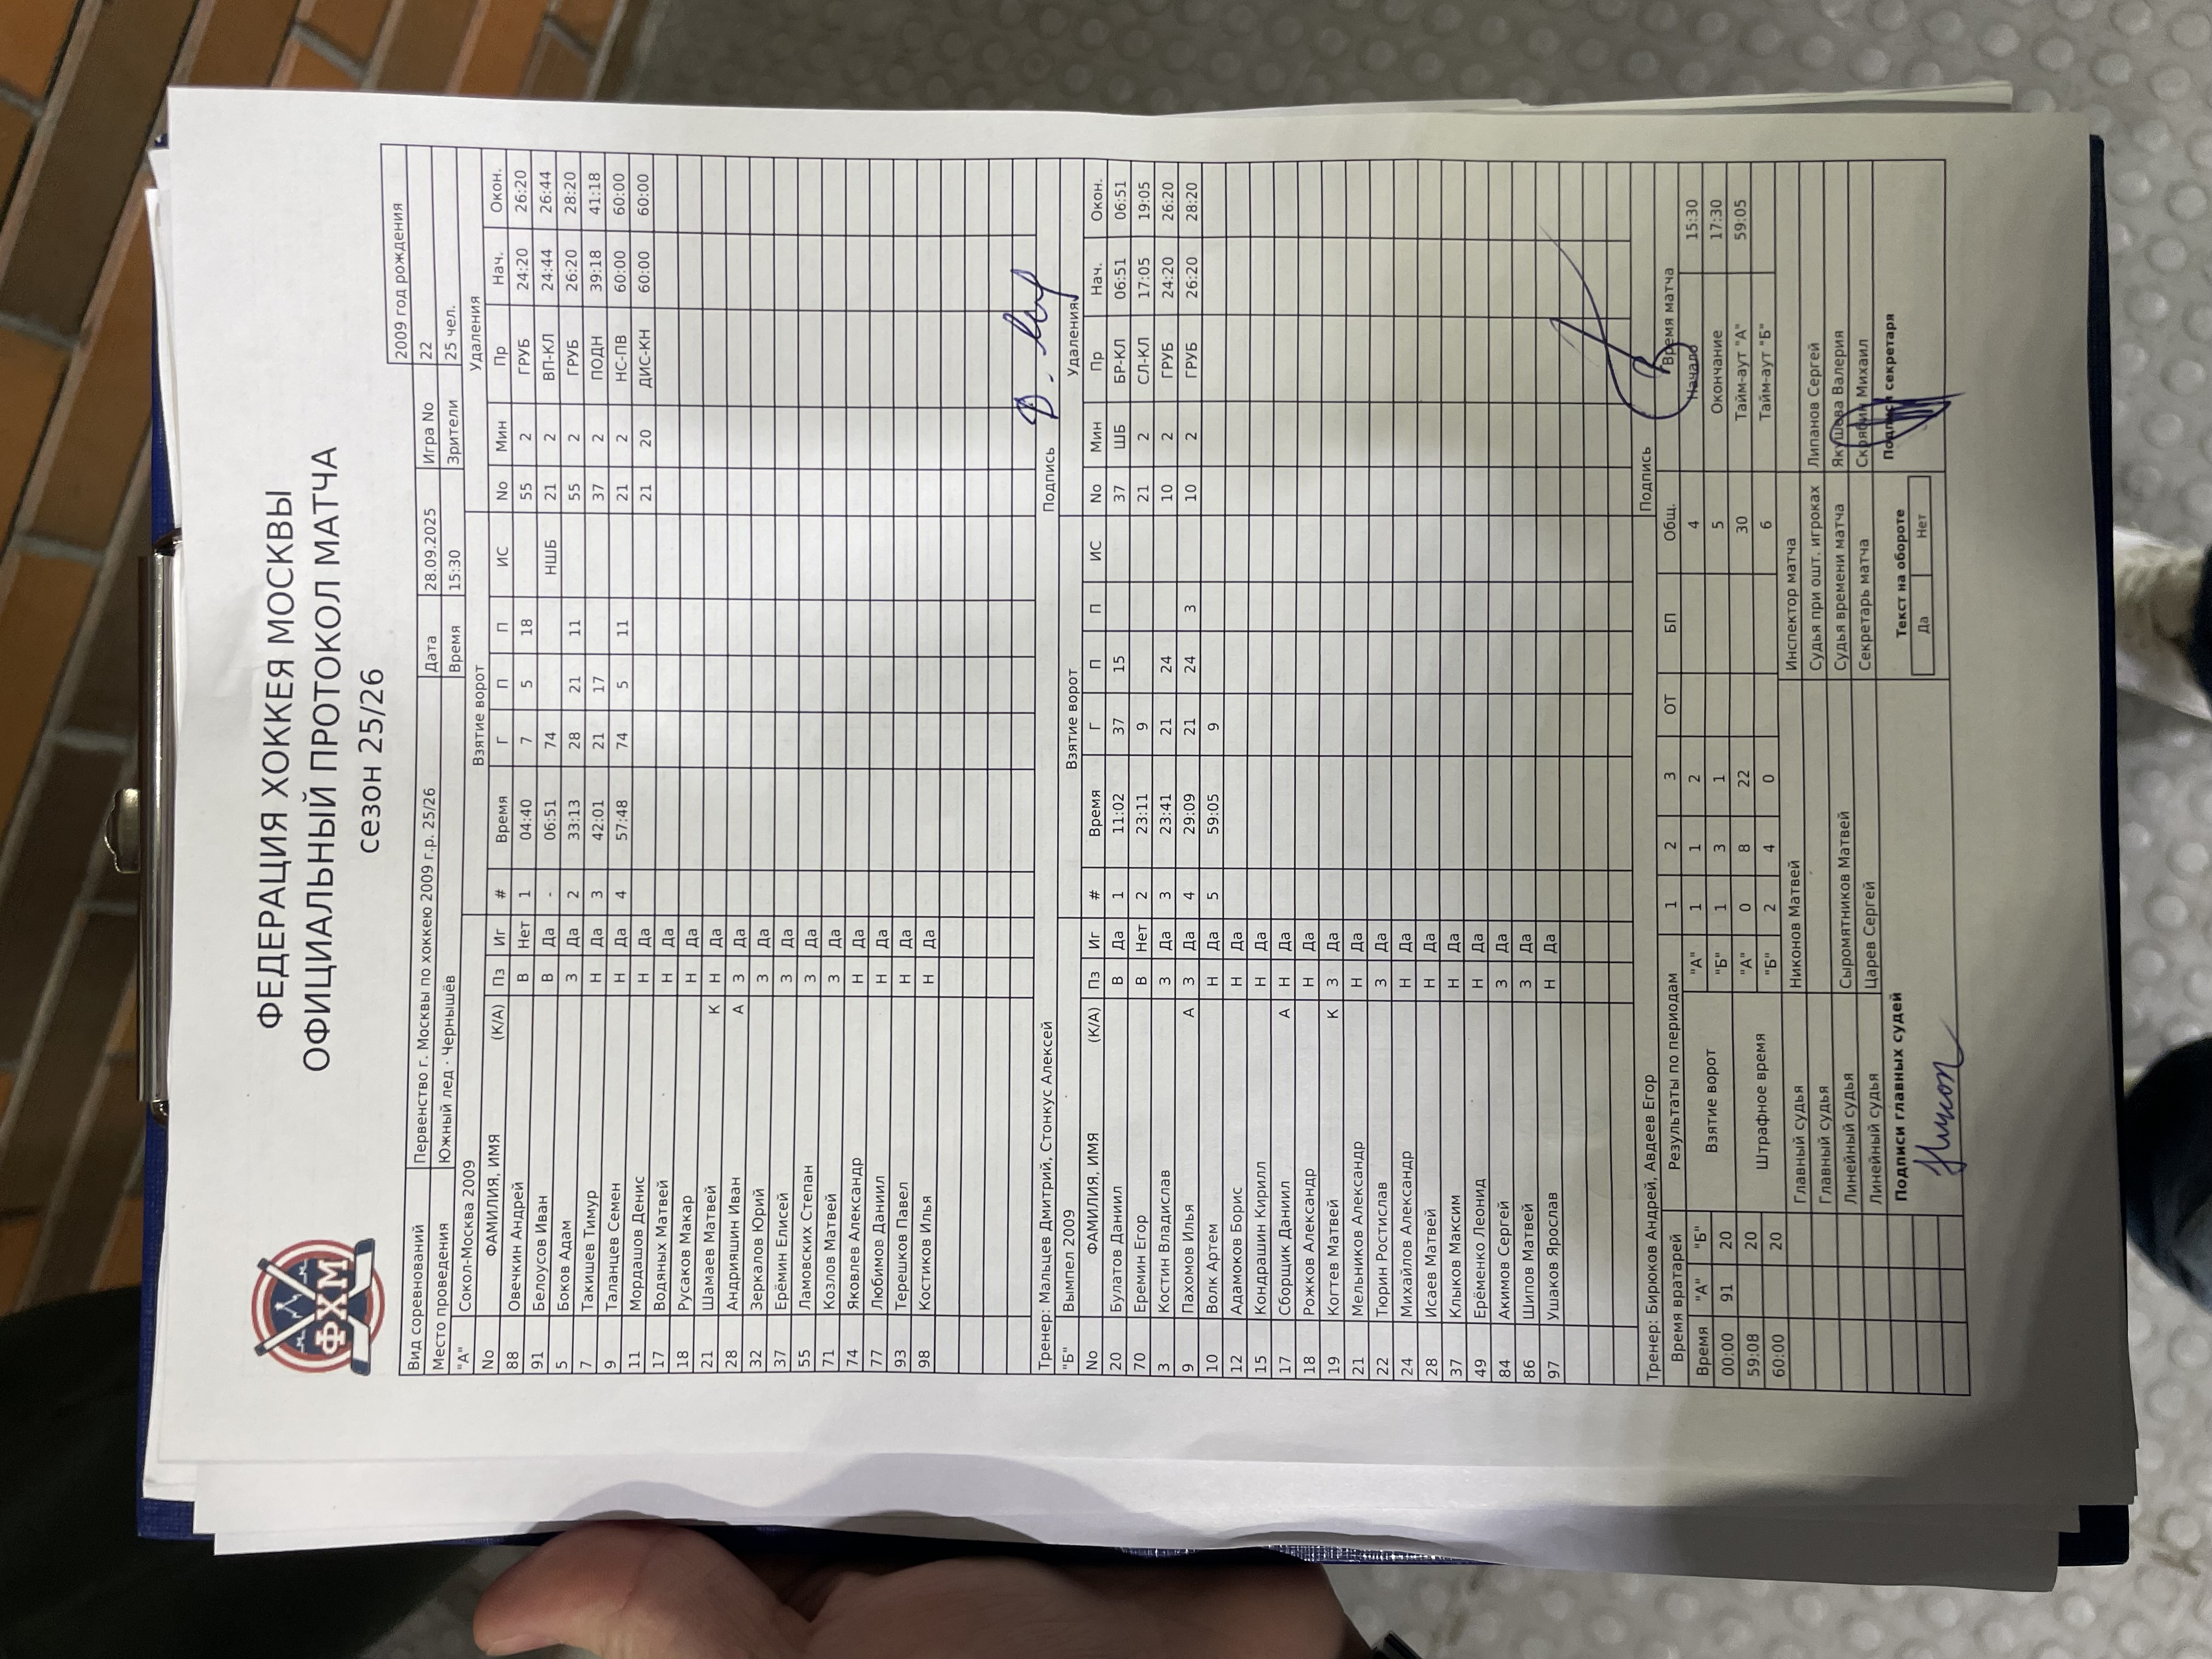 ФХМ
ФЕДЕРАЦИЯ ХОККЕЯ МОСКВЫ
ОФИЦИАЛЬНЫЙ ПРОТОКОЛ МАТЧА
сезон 25/26
2009 год рождения
Вид соревнований Первенство г. Москвы по хоккею 2009 г.р. 25/26 Дата 28.09.2025 Игра No 22
Место проведения Южный лед - Чернышёв Время 15:30 Зрители 25 чел.
"А" Сокол-Москва 2009 Взятие ворот Удаления
No ФАМИЛИЯ, ИМЯ (К/А) Пз Иг # Время Г П П ИС No Мин Пр Нач. Окон.
88 Овечкин Андрей В Нет 1 04:40 7 5 18 55 2 ГРУБ 24:20 26:20
91 Белоусов Иван В Да - 06:51 74 НШБ 21 2 ВП-КЛ 24:44 26:44
5 Боков Адам З Да 2 33:13 28 21 11 55 2 ГРУБ 26:20 28:20
7 Такишев Тимур Н Да 3 42:01 21 17 37 2 ПОДН 39:18 41:18
9 Таланцев Семен Н Да 4 57:48 74 5 11 21 2 НС-ПВ 60:00 60:00
11 Мордашов Денис Н Да 21 20 ДИС-КН 60:00 60:00
17 Водяных Матвей Н Да
18 Русаков Макар Н Да
21 Шамаев Матвей К Н Да
28 Андрияшин Иван А З Да
32 Зеркалов Юрий З Да
37 Ерёмин Елисей З Да
55 Ламовских Степан З Да
71 Козлов Матвей З Да
74 Яковлев Александр Н Да
77 Любимов Даниил Н Да
93 Терешков Павел Н Да
98 Костиков Илья Н Да
Тренер: Мальцев Дмитрий, Стонкус Алексей Подпись
"Б" Вымпел 2009 Взятие ворот Удаления
No ФАМИЛИЯ, ИМЯ (К/А) Пз Иг # Время Г П П ИС No Мин Пр Нач. Окон.
20 Булатов Даниил В Да 1 11:02 37 15 37 ШБ БР-КЛ 06:51 06:51
70 Еремин Егор В Нет 2 23:11 9 21 2 СЛ-КЛ 17:05 19:05
3 Костин Владислав З Да 3 23:41 21 24 10 2 ГРУБ 24:20 26:20
9 Пахомов Илья А З Да 4 29:09 21 24 3 10 2 ГРУБ 26:20 28:20
10 Волк Артем Н Да 5 59:05 9
12 Адамоков Борис Н Да
15 Кондрашин Кирилл Н Да
17 Сборщик Даниил А Н Да
18 Рожков Александр Н Да
19 Когтев Матвей К З Да
21 Мельников Александр Н Да
22 Тюрин Ростислав З Да
24 Михайлов Александр Н Да
28 Исаев Матвей Н Да
37 Клыков Максим Н Да
49 Ерёменко Леонид Н Да
84 Акимов Сергей З Да
86 Шипов Матвей З Да
97 Ушаков Ярослав Н Да
Тренер: Бирюков Андрей, Авдеев Егор Подпись
Время вратарей Результаты по периодам 1 2 3 ОТ БП Общ. Время матча
Время "А" "Б" Взятие ворот "А" 1 1 2 4 Начало 15:30
00:00 91 20 "Б" 1 3 1 5 Окончание 17:30
59:08 20 Штрафное время "А" 0 8 22 30 Тайм-аут "А" 59:05
60:00 20 "Б" 2 4 0 6 Тайм-аут "Б"
Главный судья Никонов Матвей Инспектор матча
Главный судья Судья при ошт. игроках Липанов Сергей
Линейный судья Сыромятников Матвей Судья времени матча Якушева Валерия
Линейный судья Царев Сергей Секретарь матча Скрябин Михаил
Подписи главных судей Текст на обороте Подписи секретаря
Да Нет